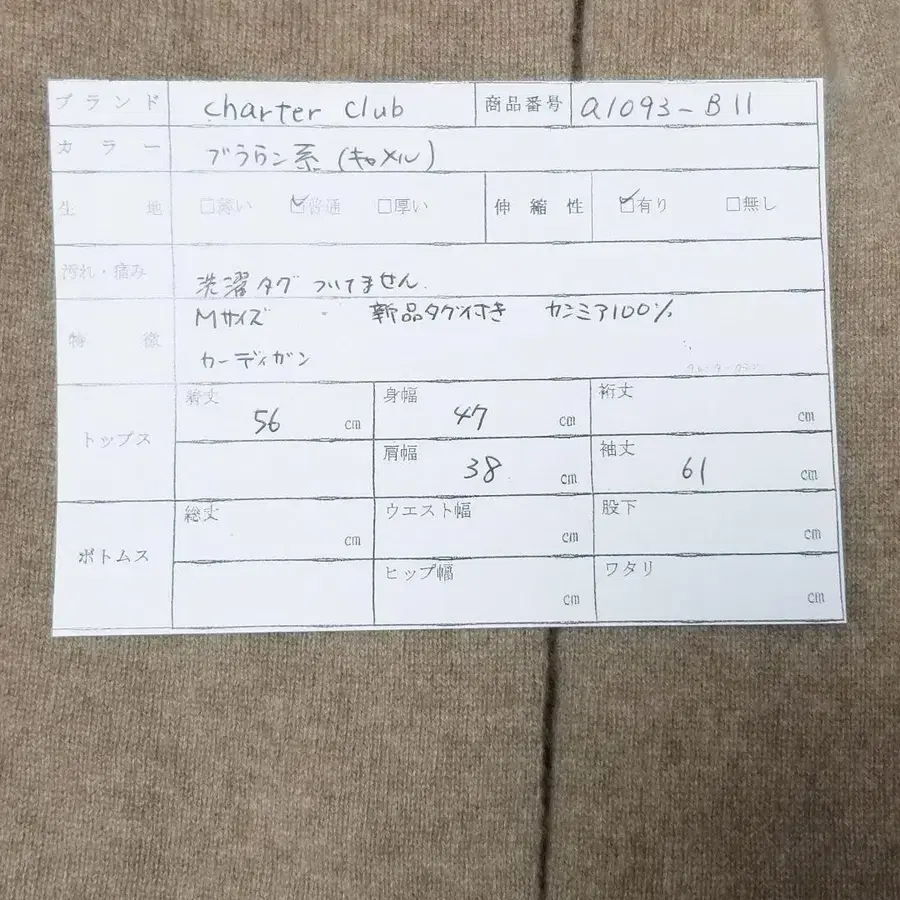 ブランド charter club 商品番号 a1093-B11
カラー ブラウン系(キャメル)
生地 □薄い ☑普通 □厚い 伸縮性 ☑有り □無し
汚れ・痛み 洗濯タグ ついてません.
特徴 Mサイズ 新品タグ付き カシミア100%
カーディガン
トップス 着丈 56 cm 身幅 47 cm 裄丈 cm
肩幅 38 cm 袖丈 61 cm
ボトムス 総丈 cm ウエスト幅 cm 股下 cm
ヒップ幅 cm ワタリ cm